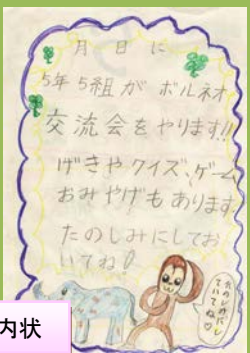 月 日 に
5年 5組 が ボルネオ
交流会をやります!!
げきやクイズ、ゲーム
おみやげもあります
たのしみにしてお
いてね♡
たのしみにし
ていてね♡
内状